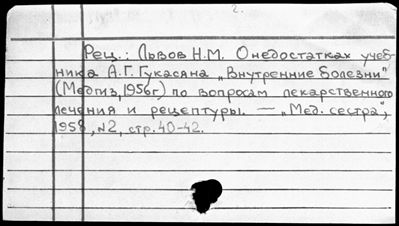 2.
Рец.: Львов Н.М. О недостатках учеб-
ника А.Г. Гукасяна „Внутренние болезни"
(Медгиз, 1956г.) по вопросам лекарственного
лечения и рецептуры. — „Мед. сестра",
1958, №2, стр. 40-42.